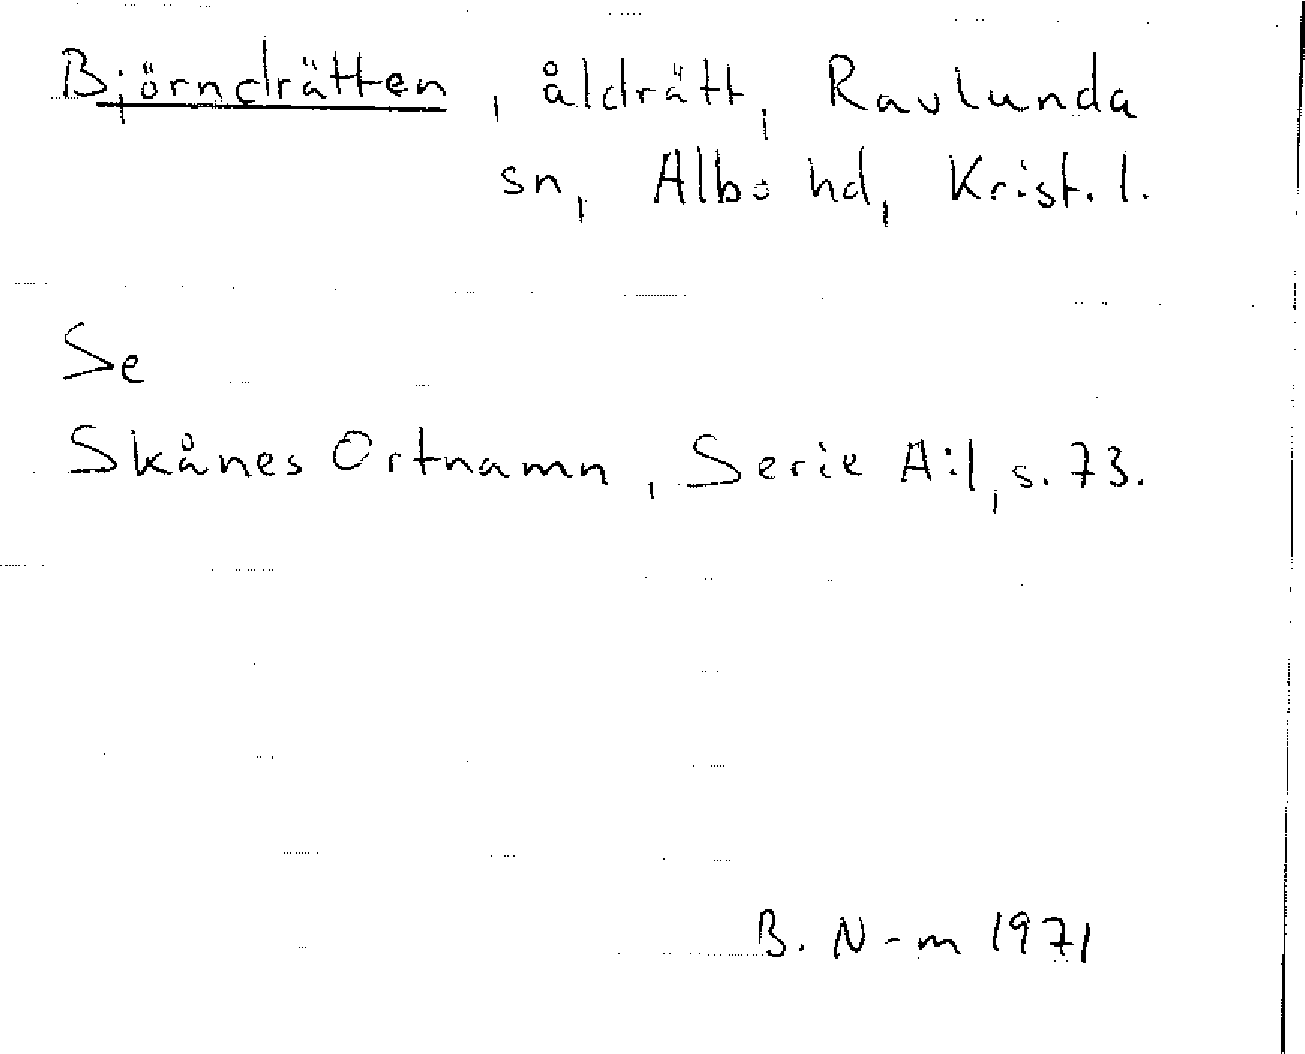 Björndrätten, åldrätt, Ravlunda
sn, Albo hd, Krist. l.
Se
Skånes Ortnamn, Serie A:1, s. 73.
B. N-m 1971